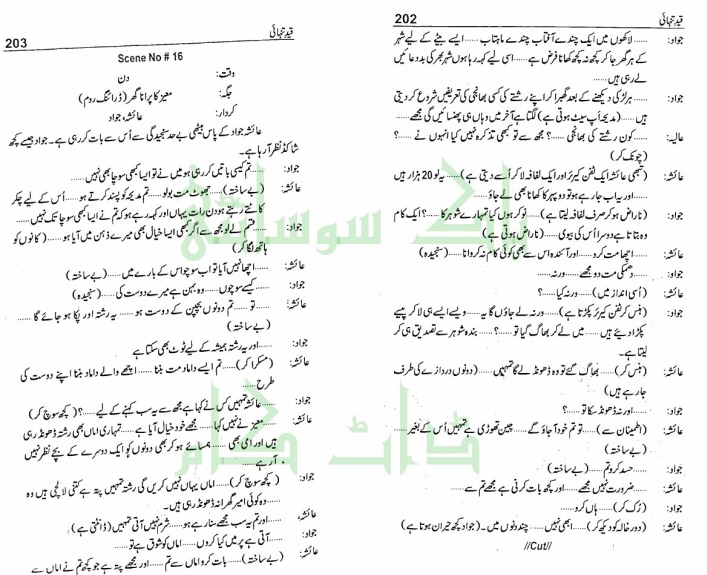 202
قید تنہائی
جواد: ...... لاکھوں میں ایک چندے آفتاب چندے ماہتاب ...... ایسے بیٹے کے لیے شہر
کے ہر گھر جا کر کچھ نہ کچھ کھانا فرض ہے ...... اسی لیے کہہ رہا ہوں شہر بھر کی بددعائیں
لے رہی ہیں ......
جواد: ...... ہر لڑکی دیکھنے کے بعد گھبرا کر اپنے رشتے کی کسی بھانجی کی تعریفیں شروع کر دیتی
ہیں ...... (مدیحہ اپ سیٹ ہوتی ہے) لگتا ہے آخر میں وہاں ہی پھنسائیں گی مجھے ......
عالیہ: ...... کون رشتے کی بھانجی ......؟ مجھ سے تو کبھی تذکرہ نہیں کیا انہوں نے ......؟
(چونک کر)
عائشہ: (تبھی عائشہ ایک ٹفن کیریئر اور ایک لفافہ لا کر اُسے دیتی ہے) ...... یہ لو 20 ہزار ہیں
...... اور یہ اب جا رہے ہو تو دوپہر کا کھانا بھی لے جاؤ
جواد: (ناراض ہو کر صرف لفافہ لیتا ہے) ...... نوکر ہوں کیا تمہارے شوہر کا ......؟ ایک کام
وہ بتاتا ہے دوسرا اُس کی بیوی ...... (ناراض ہوتی ہے)
عائشہ: اچھا مت کرو ...... اور آئندہ اس سے بھی کوئی کام نہ کروانا ...... (سنجیدہ)
جواد: ...... دھمکی مت دو مجھے ...... ورنہ ......
عائشہ: (اُسی انداز میں) ...... ورنہ کیا ......؟
جواد: (ہنس کر ٹفن کیریئر پکڑتا ہے) ...... ورنہ لے جاؤں گا یہ ...... ویسے ایسے ہی لا کر پیسے
پکڑا دیئے ہیں ...... میں لے کر بھاگ گیا تو ......؟ ...... بندہ شوہر سے تصدیق ہی کر
لیتا ہے۔
عائشہ: (ہنس کر) ...... بھاگ گئے تو وہ ڈھونڈ لے گا تمہیں ...... (دونوں دروازے کی طرف
جا رہے ہیں)
جواد: ...... اور نہ ڈھونڈ سکا تو ......؟
عائشہ: (اطمینان سے) ...... تو تم خود آ جاؤ گے ...... چین تھوڑی ہے تمہیں اُس کے بغیر ......
(بے ساختہ)
جواد: ...... حسد کرو تم ...... (بے ساختہ)
عائشہ: ...... ضرورت نہیں مجھے ...... اور کچھ بات کرنی ہے مجھے تم سے ......
جواد: (رُک کر) ...... ہاں کرو ......
عائشہ: (دور خالہ کو دیکھ کر) ...... ابھی نہیں ...... چند دنوں میں۔ (جواد کچھ حیران ہوتا ہے)
//Cut//
203
قید تنہائی
Scene No # 16
وقت: دن
جگہ: معیز کا پرانا گھر (ڈرائنگ روم)
کردار: عائشہ، جواد
عائشہ جواد کے پاس بیٹھی بے حد سنجیدگی سے اُس سے بات کر رہی ہے۔ جواد جیسے کچھ
شاکڈ نظر آ رہا ہے۔
جواد: ...... تم کیسی باتیں کر رہی ہو میں نے تو ایسا کبھی سوچا بھی نہیں ......
عائشہ: (بے ساختہ) ...... جھوٹ مت بولو ...... تم مدیحہ کو پسند کرتے ہو ...... اُس کے لیے چکر
کاٹتے رہتے ہو دن رات یہاں اور کہہ رہے ہو کہ تم نے ایسا کبھی سوچا تک نہیں ......
جواد: ...... قسم لے لو مجھ سے اگر کبھی ایسا خیال بھی میرے ذہن میں آیا ہو ...... (کانوں کو
ہاتھ لگا کر)
عائشہ: ...... اچھا نہیں آیا تو اب سوچو اس کے بارے میں ...... (بے ساختہ)
جواد: ...... کیسے سوچوں ...... وہ بہن ہے میرے دوست کی ...... (سنجیدہ)
عائشہ: ...... تو ...... تم دونوں بچپن کے دوست ہو ...... یہ رشتہ اور پکا ہو جائے گا ......
(بے ساختہ)
جواد: ...... اور یہ رشتہ ہمیشہ کے لیے ٹوٹ بھی سکتا ہے
عائشہ: (مسکرا کر) ...... تم ایسے داماد مت بننا ...... اچھے والے داماد بننا اپنے دوست کی
طرح۔
جواد: ...... عائشہ تمہیں کس نے کہا ہے مجھ سے یہ سب کہنے کے لیے ......؟ (کچھ سوچ کر)
عائشہ: ...... معیز نے نہیں کہا ...... مجھے خود خیال آیا ہے ...... تمہاری اماں بھی رشتہ ڈھونڈ رہی
ہیں اور امی بھی ...... ہمسائے ہو کر بھی دونوں کو ایک دوسرے کے بچے نظر نہیں
آ رہے۔
جواد: (کچھ سوچ کر) ...... اماں یہاں نہیں کریں گی رشتہ تمہیں پتہ ہے کتنی لالچی ہیں وہ
...... وہ کوئی امیر گھرانہ ڈھونڈ رہی ہیں۔
عائشہ: ...... اور تم یہ سب مجھے سنا رہے ہو ...... شرم نہیں آتی تمہیں (ڈانٹتی ہے)
جواد: ...... آتی ہے پر میں کیا کروں ...... اماں کو شوق ہے تو ......
عائشہ: (بے ساختہ) ...... بات کرو اماں سے تم ...... اور مجھے پتہ ہے جو کچھ تم نے اماں سے
پاک سوسائٹی
ڈاٹ کام